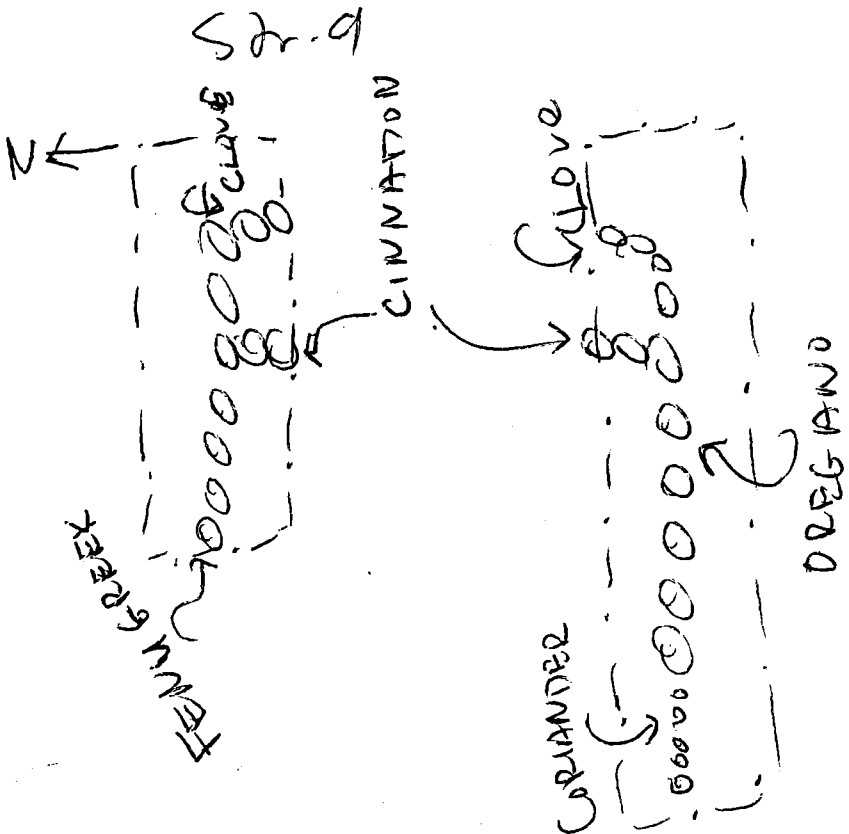 Str. 9
N
CLOVE
CINNAMON
FENN GREEK
Clove
CORIANDER
OREGIANO